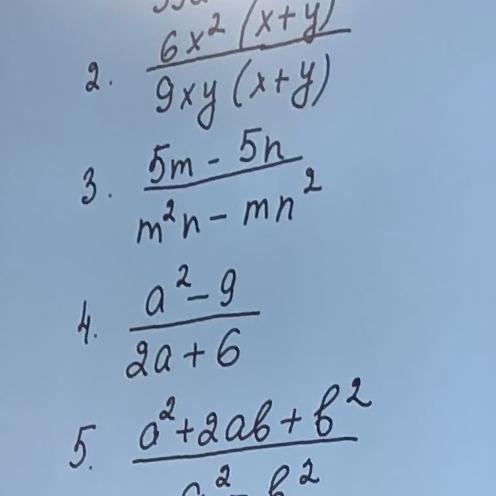 2. 6x² (x+y)
9xy (x+y)
3. 5m - 5n
m²n - mn²
4. a² - 9
2a + 6
5. a² + 2ab + b²
a² - b²